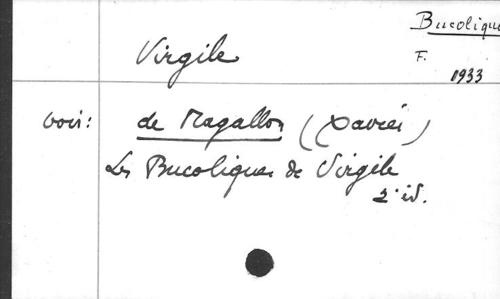 Bucolique
Virgile
F.
1933
voir: de Magallon (Xavier)
Les Bucoliques de Virgile
2e éd.